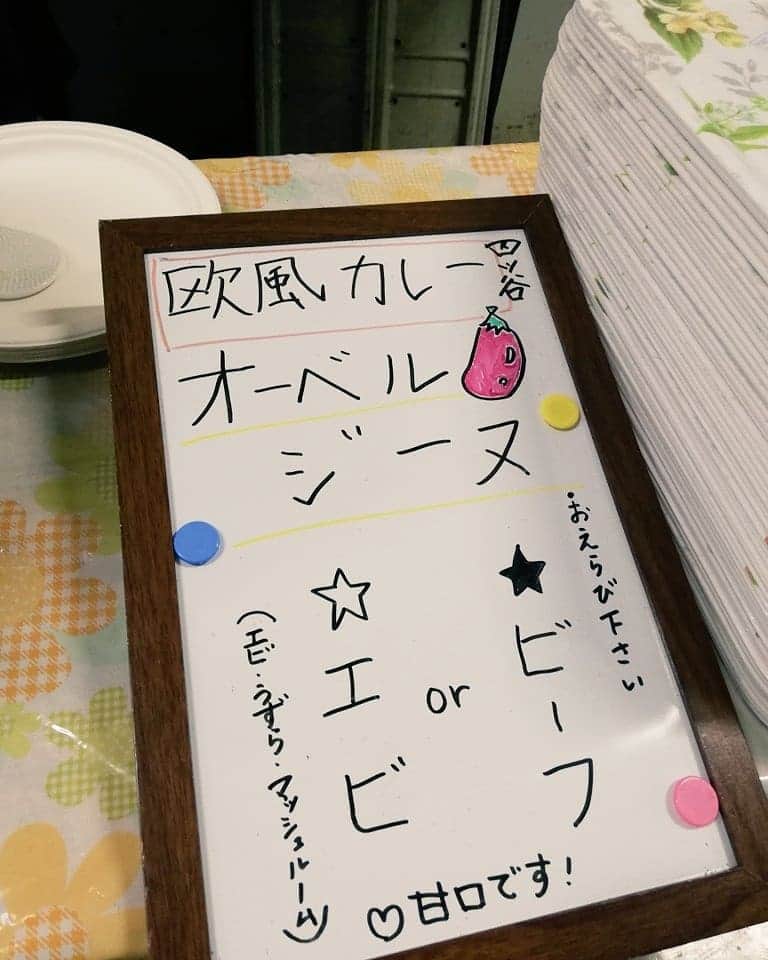 欧風カレー
四ッ谷
オーベル
ジーヌ
・おえらび下さい
★ビーフ
or
☆エビ
(エビ・うずら・マッシュルーム)
♡甘口です!